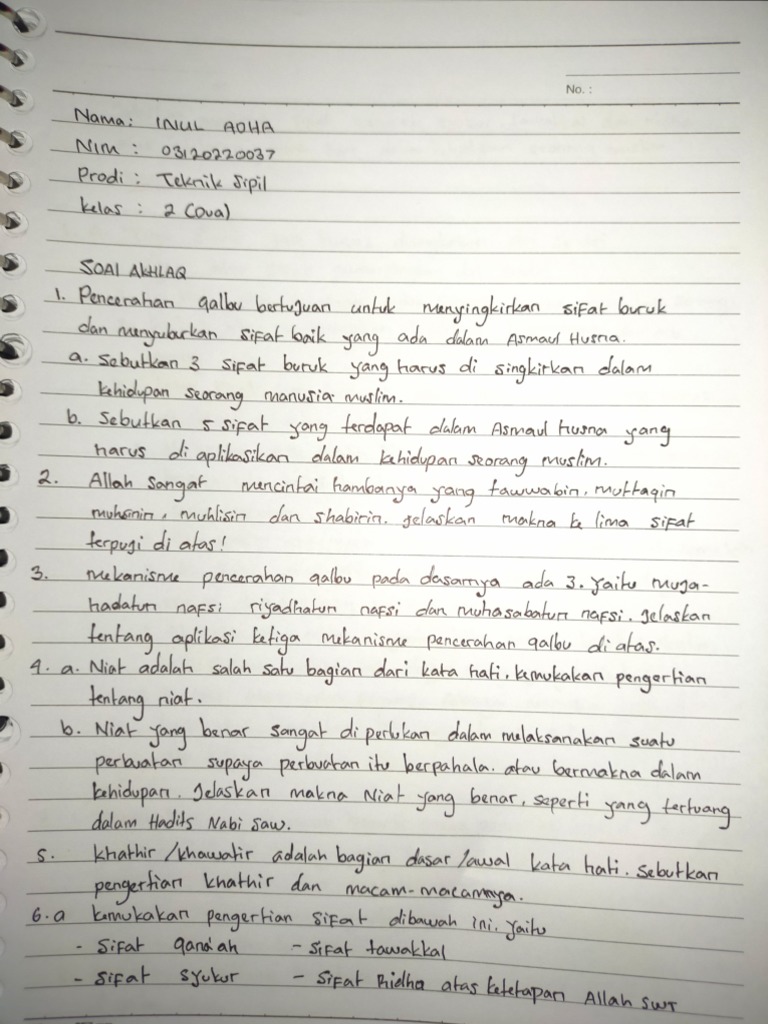 No. :
Nama : INUL ADHA
Nim : 03120220037
Prodi : Teknik Sipil
Kelas : 2 (Dua)
SOAl AKHLAQ
1. Pencerahan qalbu bertujuan untuk menyingkirkan sifat buruk
dan menyuburkan sifat baik yang ada dalam Asmaul Husna.
a. Sebutkan 3 sifat buruk yang harus di singkirkan dalam
kehidupan seorang manusia muslim.
b. Sebutkan 5 sifat yang terdapat dalam Asmaul husna yang
harus di aplikasikan dalam kehidupan seorang muslim.
2. Allah sangat mencintai hambanya yang tawwabin, muttaqin
muhsinin, muhlisin dan shabirin. jelaskan makna ke lima sifat
terpuji di atas!
3. Mekanisme pencerahan qalbu pada dasarnya ada 3. yaitu muja-
hadatun nafsi riyadhatun nafsi dan muhasabatun nafsi. jelaskan
tentang aplikasi ketiga mekanisme pencerahan qalbu di atas.
4. a. Niat adalah salah satu bagian dari kata hati, kemukakan pengertian
tentang niat.
b. Niat yang benar sangat di perlukan dalam melaksanakan suatu
perbuatan supaya perbuatan itu berpahala. atau bermakna dalam
kehidupan. jelaskan makna Niat yang benar, seperti yang tertuang
dalam Hadits Nabi Saw.
5. Khathir /khawatir adalah bagian dasar /awal kata hati. sebutkan
pengertian khathir dan macam-macamnya.
6. a kemukakan pengertian sifat dibawah ini. yaitu
- Sifat qana'ah - Sifat tawakkal
- Sifat syukur - Sifat Ridha atas ketetapan Allah SWT